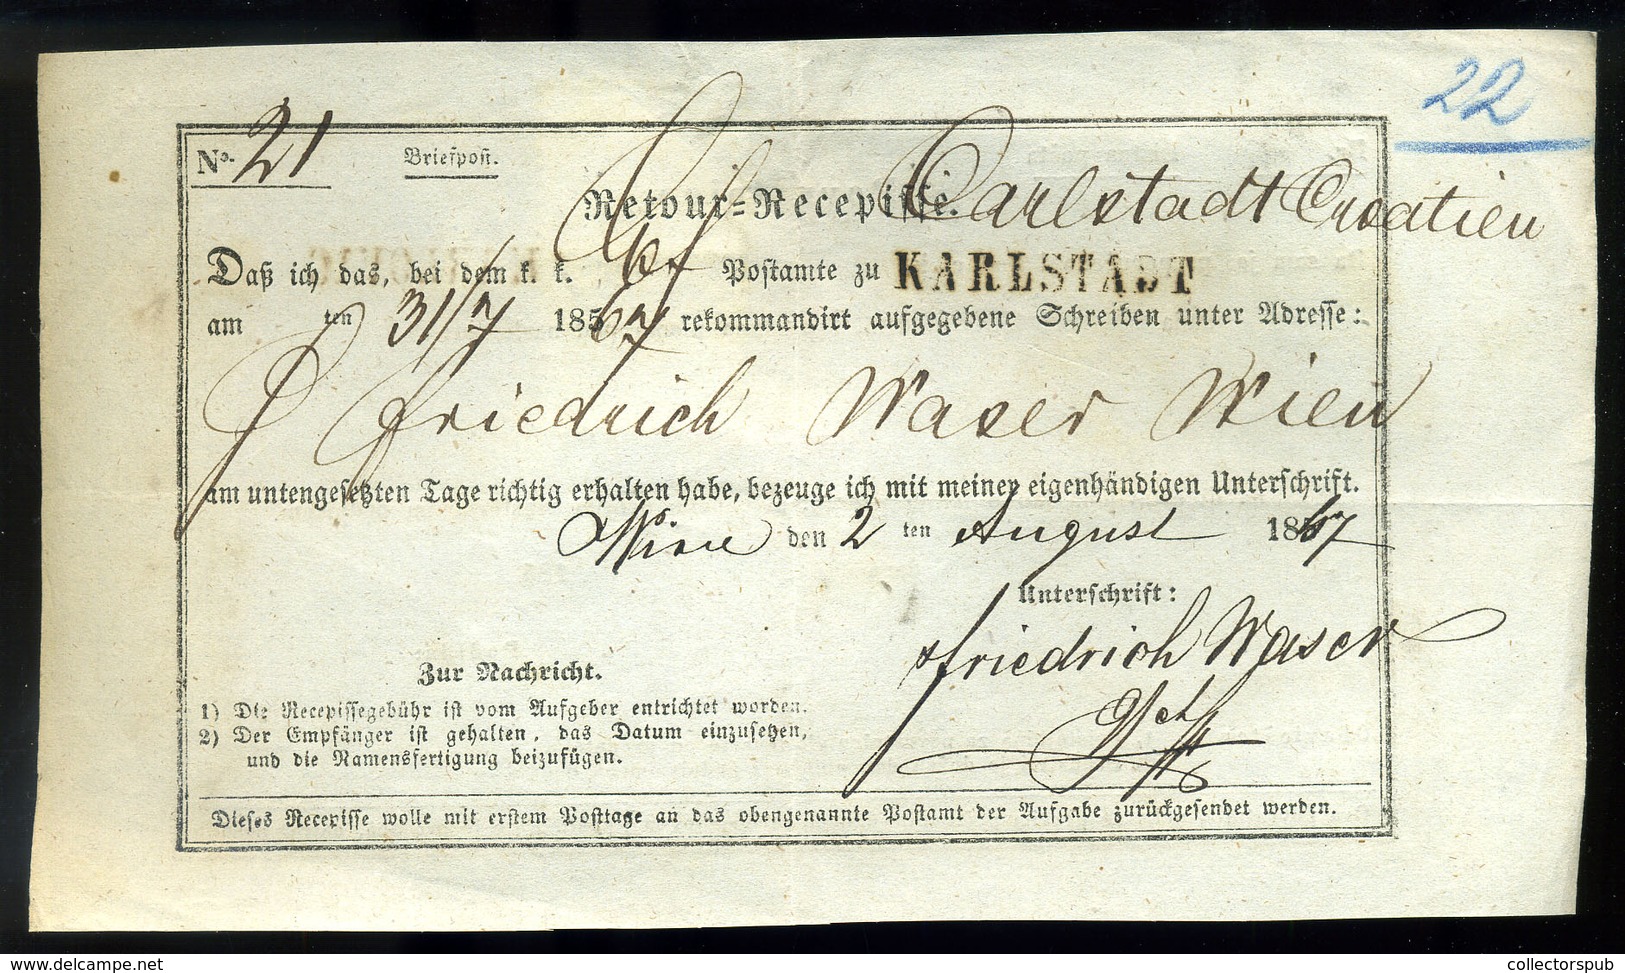 22
No. 21 Briefpost.
Retour-Recepisse. Carlstadt Croatien
Daß ich das, bei dem k. k. Postamte zu KARLSTADT
am ten 31/7 1867 rekommandirt aufgegebene Schreiben unter Adresse:
Friedrich Waser Wien
am untengesetzten Tage richtig erhalten habe, bezeuge ich mit meiner eigenhändigen Unterschrift.
Wien den 2 ten August 1867
Unterschrift:
Friedrich Waser
Zur Nachricht.
1) Die Recepissegebühr ist vom Aufgeber entrichtet worden.
2) Der Empfänger ist gehalten, das Datum einzusetzen,
und die Namensfertigung beizufügen.
Dieses Recepisse wolle mit erstem Posttage an das obengenannte Postamt der Aufgabe zurückgesendet werden.
collectorspub.com